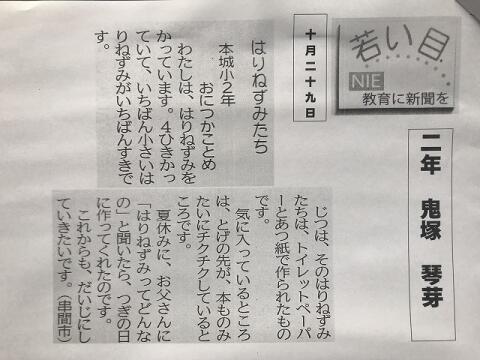 若い目
NIE
教育に新聞を
十月二十九日
二年 鬼塚 琴芽
はりねずみたち
本城小2年
おにつかことめ
わたしは、はりねずみを
かっています。4ひきかっ
ていて、いちばん小さいは
りねずみがいちばんすきで
す。
じつは、そのはりねずみ
たちは、トイレットペーパ
ーとあつ紙で作られたもの
です。
気に入っているところ
は、とげの先が、本ものみ
たいにチクチクしていると
ころです。
夏休みに、お父さんに
「はりねずみってどんな
の」と聞いたら、つぎの日
に作ってくれたのです。
これからも、だいじにし
ていきたいです。(串間市)